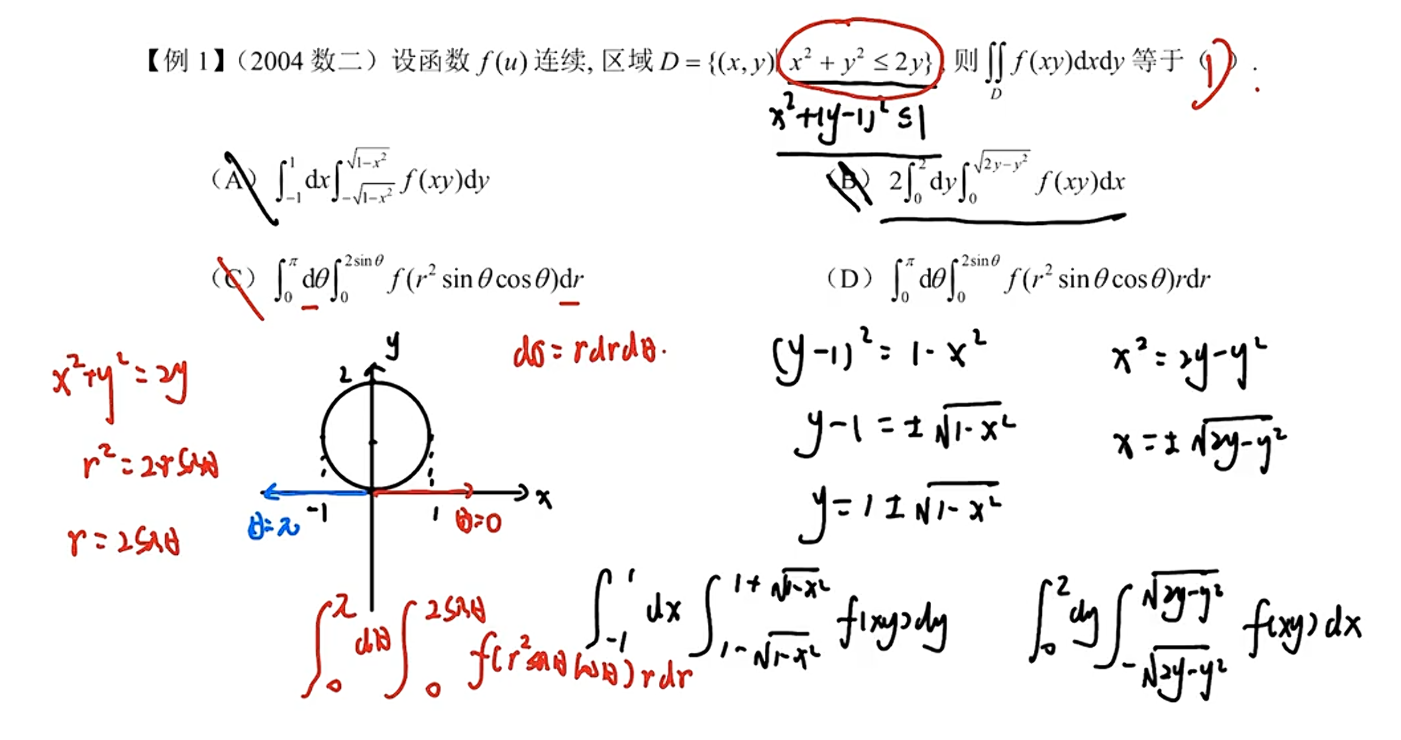 【例 1】(2004 数二) 设函数 f(u) 连续, 区域 D = {(x, y)| x² + y² ≤ 2y}, 则 ∬_D f(xy)dxdy 等于 ( D ).
x²+(y-1)² ≤ 1
(A) ∫_{-1}^{1} dx ∫_{-√(1-x²)}^{√(1-x²)} f(xy)dy
(B) 2∫_0^2 dy ∫_0^{√(2y-y²)} f(xy)dx
(C) ∫_0^π dθ ∫_0^{2sinθ} f(r² sinθcosθ)dr
(D) ∫_0^π dθ ∫_0^{2sinθ} f(r² sinθcosθ)rdr
x²+y²=2y
r²=2rsinθ
r=2sinθ
y
2
x
-1
1
θ=π
θ=0
dσ=rdrdθ.
(y-1)²=1-x²
y-1=±√(1-x²)
y=1±√(1-x²)
x²=2y-y²
x=±√(2y-y²)
∫_0^π dθ ∫_0^{2sinθ} f(r²sinθcosθ)rdr
∫_{-1}^{1} dx ∫_{1-√(1-x²)}^{1+√(1-x²)} f(xy)dy
∫_0^2 dy ∫_{-√(2y-y²)}^{√(2y-y²)} f(xy)dx